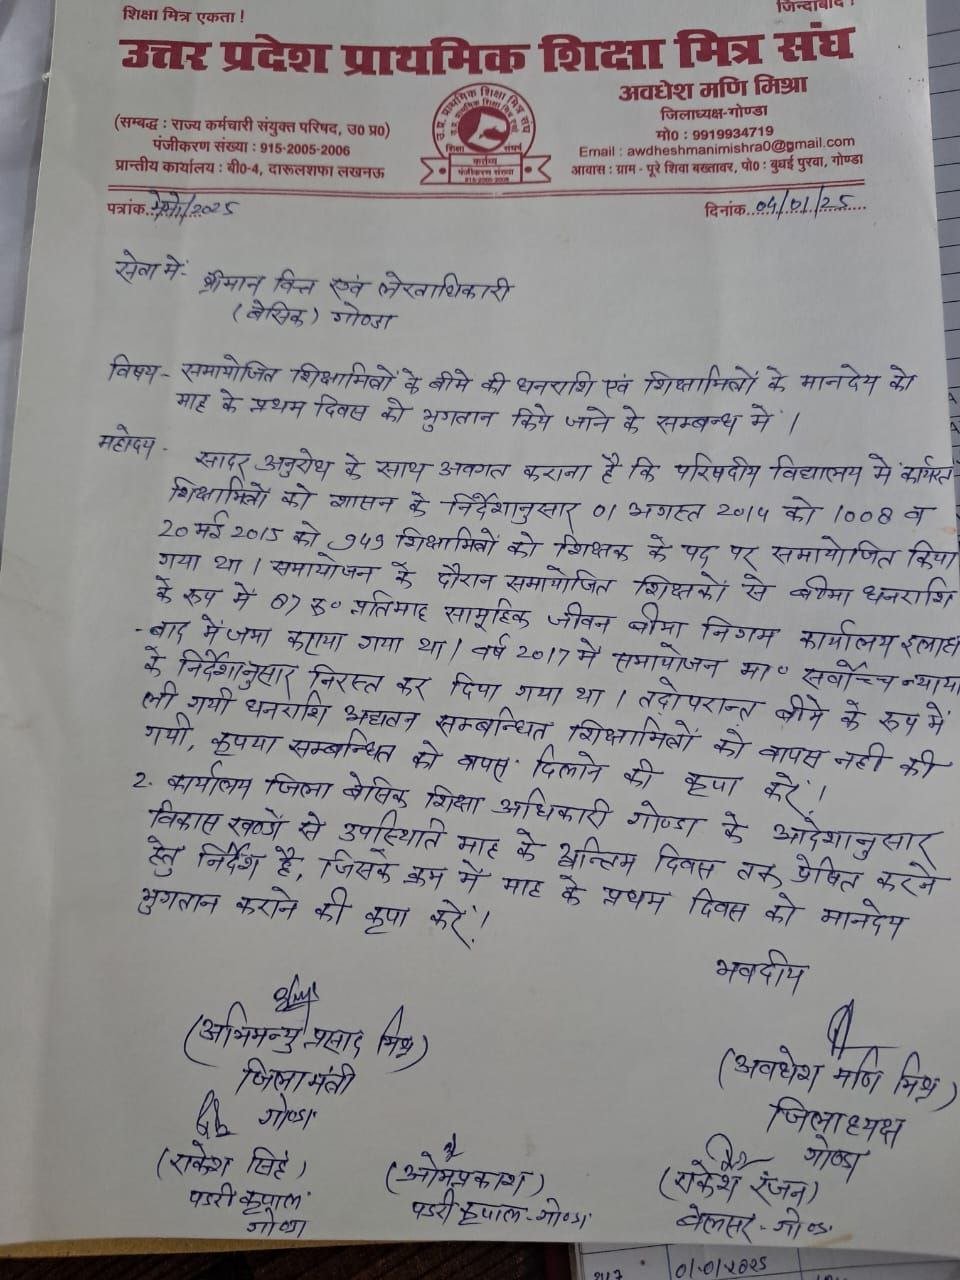 शिक्षा मित्र एकता !
जिन्दाबाद !
उत्तर प्रदेश प्राथमिक शिक्षा मित्र संघ
अवधेश मणि मिश्रा
जिलाध्यक्ष-गोण्डा
मो० : 9919934719
Email : awdheshmanimishra0@gmail.com
आवास : ग्राम - पूरे शिवा बख्तावर, पो० : बुधई पुरवा, गोण्डा
(सम्बद्ध : राज्य कर्मचारी संयुक्त परिषद, उ0 प्र0)
पंजीकरण संख्या : 915-2005-2006
प्रान्तीय कार्यालय : बी0-4, दारूलशफा लखनऊ
उ.प्र. प्राथमिक शिक्षा मित्र संघ
शिक्षा
संघर्ष
कर्तव्य
पंजीकरण संख्या
915-2005-2006
पत्रांक /2025
दिनांक 04/01/25
सेवा में- श्रीमान वित्त एवं लेखाधिकारी
(बेसिक) गोण्डा
विषय- समायोजित शिक्षामित्रों के बीमे की धनराशि एवं शिक्षामित्रों के मानदेय को
माह के प्रथम दिवस को भुगतान किये जाने के सम्बन्ध में ।
महोदय-
सादर अनुरोध के साथ अवगत कराना है कि परिषदीय विद्यालय में कार्यरत
शिक्षामित्रों को शासन के निर्देशानुसार 01 अगस्त 2014 को 1008 व
20 मई 2015 को 949 शिक्षामित्रों को शिक्षक के पद पर समायोजित किया
गया था । समायोजन के दौरान समायोजित शिक्षकों से बीमा धनराशि
के रूप में 87 रु० प्रतिमाह सामूहिक जीवन बीमा निगम कार्यालय इलाहा
-बाद में जमा कराया गया था । वर्ष 2017 में समायोजन मा० सर्वोच्च न्याया
के निर्देशानुसार निरस्त कर दिया गया था । तदोपरान्त बीमे के रूप में
ली गयी धनराशि अद्यतन सम्बन्धित शिक्षामित्रों को वापस नही की
गयी, कृपया सम्बन्धित को वापस दिलाने की कृपा करें ।
2. कार्यालय जिला बेसिक शिक्षा अधिकारी गोण्डा के आदेशानुसार
विकास खण्डों से उपस्थिति माह के अन्तिम दिवस तक प्रेषित करने
हेतु निर्देश है, जिसके क्रम में माह के प्रथम दिवस को मानदेय
भुगतान कराने की कृपा करें ।
भवदीय
(अभिमन्यु प्रसाद मिश्र)
जिलामंत्री
गोण्डा
(अवधेश मणि मिश्र)
जिलाध्यक्ष
गोण्डा
(राकेश सिंह)
पडरी कृपाल
गोण्डा
(ओमप्रकाश)
पडरी कृपाल-गोण्डा
(राकेश रंजन)
बेलसर-गोण्डा
01-01-2025